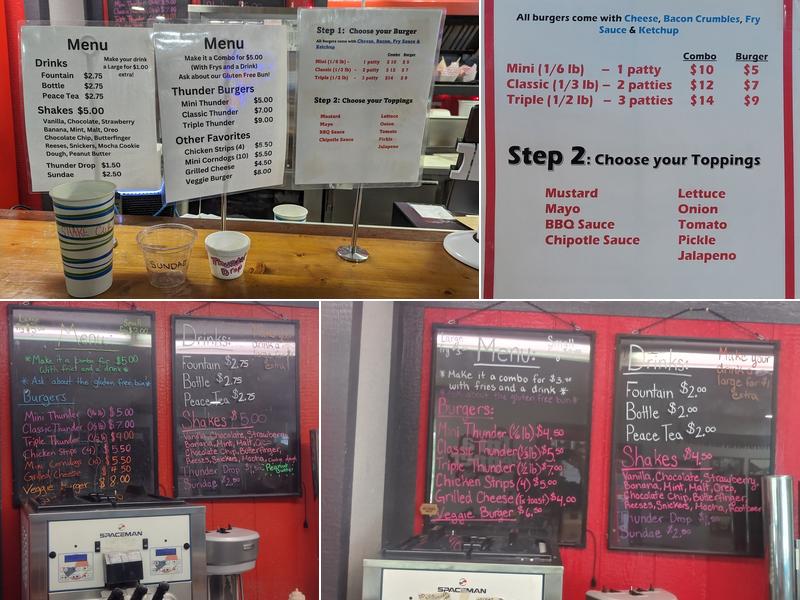 Menu
Drinks
Make your drink
a Large for $1.00
extra!
Fountain $2.75
Bottle $2.75
Peace Tea $2.75
Shakes $5.00
Vanilla, Chocolate, Strawberry
Banana, Mint, Malt, Oreo
Chocolate Chip, Butterfinger
Reeses, Snickers, Mocha Cookie
Dough, Peanut Butter
Thunder Drop $1.50
Sundae $2.50
SHAKE CUP
SUNDAE
Thunder
Drop
Menu
Make it a Combo for $5.00
(With Frys and a Drink)
Ask about our Gluten Free Bun!
Thunder Burgers
Mini Thunder $5.00
Classic Thunder $7.00
Triple Thunder $9.00
Other Favorites
Chicken Strips (4) $5.50
Mini Corndogs (10) $5.50
Grilled Cheese $4.50
Veggie Burger $8.00
Step 1: Choose your Burger
All Burgers come with Cheese, Bacon, Fry Sauce &
Ketchup
Combo Burger
Mini (1/6 lb) - 1 patty $10 $5
Classic (1/3 lb) - 2 patties $12 $7
Triple (1/2 lb) - 3 patties $14 $9
Step 2: Choose your Toppings
Mustard Lettuce
Mayo Onion
BBQ Sauce Tomato
Chipotle Sauce Pickle
Jalapeno
All burgers come with Cheese, Bacon Crumbles, Fry
Sauce & Ketchup
Combo Burger
Mini (1/6 lb) – 1 patty $10 $5
Classic (1/3 lb) – 2 patties $12 $7
Triple (1/2 lb) – 3 patties $14 $9
Step 2: Choose your Toppings
Mustard Lettuce
Mayo Onion
BBQ Sauce Tomato
Chipotle Sauce Pickle
Jalapeno
Menu:
*Make it a combo for $5.00
With fries and a drink*
* Ask about the gluten free bun*
Burgers
Mini Thunder (1/6 lb) $5.00
Classic Thunder (1/3 lb) $7.00
Triple Thunder (1/2 lb) $9.00
Chicken Strips (4) $5.50
Mini Corndogs (10) $5.50
Grilled Cheese $4.50
Veggie Burger $8.00
Drinks:
Fountain $2.75
Bottle $2.75
Peace Tea $2.75
Shakes $5.00
Vanilla, Chocolate, Strawberry
Banana, Mint, Malt, Oreo
Chocolate Chip, Butterfinger
Reeses, Snickers, Mocha, Cookie dough
Thunder Drop $1.50 Peanut Butter
Sundae $2.50
SPACEMAN
Large
Menu:
* Make it a combo for $3.00
with fries and a drink *
about the gluten free bun*
Burgers:
Mini Thunder (1/6 lb) $4.50
Classic Thunder (1/3 lb) $5.50
Triple Thunder (1/2 lb) $7.00
Chicken Strips (4) $5.00
Grilled Cheese (Tx toast) $4.00
Veggie Burger $6.50
Drinks:
Make your
drink a
large for $1
extra
Fountain $2.00
Bottle $2.00
Peace Tea $2.00
Shakes $4.50
Vanilla, Chocolate, Strawberry
Banana, Mint, Malt, Oreo
Chocolate Chip, Butterfinger,
Reeses, Snickers, Mocha, Rootbeer
Thunder Drop
Sundae $2.00
SPACEMAN